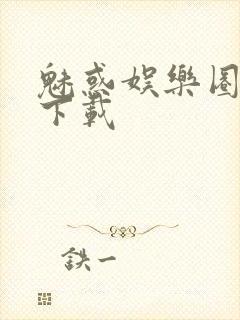 魅惑娛樂圈
下載
鉄一